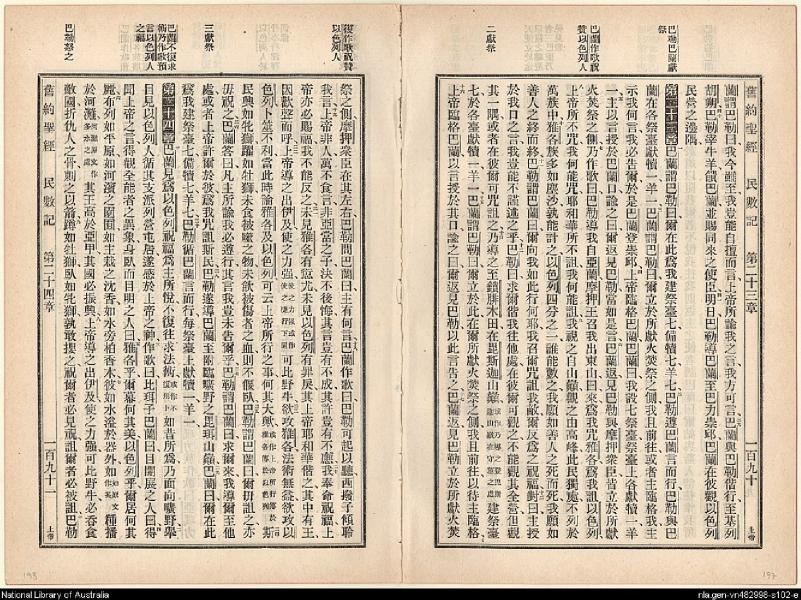 舊約聖經 民數記 第二十三章 一百九十 上帝
巴勒巴蘭獻祭
巴蘭作歌祝贊以色列人
二獻祭
蘭謂巴勒曰我今雖至我豈能自擅而言上帝所諭我之言我方可言巴蘭與巴勒偕行至基列
胡瑣巴勒宰牛羊餽巴蘭並賜同來之使臣明日巴勒導巴蘭至巴力崇邱巴蘭在彼觀以色列
民營之邊隅
第二十三章巴蘭謂巴勒曰爾在此為我建祭臺七備犢七羊七巴勒遵巴蘭言而行巴勒與巴
蘭在各祭臺獻犢一羊一巴蘭謂巴勒曰爾立於所獻火焚祭之側我且前往或者主臨格我主
示我何言我必告爾於是巴蘭登崇邱上帝臨格巴蘭巴蘭曰我設七祭臺祭臺上各獻犢一羊
一主以言授於巴蘭口諭之曰爾返見巴勒當如是言巴蘭返見巴勒與摩押眾臣皆立於所獻
火焚祭之側乃作歌曰巴勒導我自亞蘭摩押王召我出東山曰來為我咒雅各來為我詛以色列
上帝所不咒我何能咒耶和華所不詛我何能詛我視之自山巔觀之由高峰此民獨處不列於
萬族中雅各族多如塵沙孰能計之以色列四分之一誰能數之我願如善人之死而死我願如
善人之終而終巴勒謂巴蘭曰爾向我如此行何耶我召爾咒詛我敵爾反為之祝福對曰主授
於我口之言我豈能不謹述之乎巴勒曰求爾偕我往他處在彼爾可觀之不能觀其全營但觀
其一隅或者在彼爾可咒詛之乃導之至鎖腓木田在毘斯迦山巔建祭臺
七於各臺獻犢一羊一巴蘭謂巴勒曰爾立於此在爾所獻火焚祭之側我且前往以待主臨格
上帝臨格巴蘭以言授於其口諭之曰爾返見巴勒以此言告之巴蘭返見巴勒立於所獻火焚
復作歌祝贊以色列人
三獻祭
巴蘭不復求術乃作歌預言以色列人之福
巴勒怒之
祭之側摩押眾臣在其左右巴勒問巴蘭曰主有何言巴蘭作歌曰巴勒可起以聽西撥子傾聆
我言上帝非人萬不食言非亞當之子決不後悔其言豈有不成其許豈有不應我奉命祝福上
帝亦必賜福我不能反之未見雅各有愆尤未見以色列有罪戾其上帝耶和華偕之其中有王
因歡聲而呼上帝導之出伊及使之力強可比野牛欲攻雅各法術無益欲攻以
色列卜筮不利當此時論雅各及以色列可云上帝所行之事何其大歟斯
民興如牝獅躍如牡獅未食被噬之物未飲被傷者之血則不偃臥巴勒謂巴蘭曰爾毋詛之亦
毋祝之巴蘭答曰凡主所諭我必遵行其言我豈未告爾乎巴勒謂巴蘭曰求爾來我導爾至他
處或者上帝許爾於彼為我咒詛斯民巴勒遂導巴蘭至南臨曠野之毘珥山巔巴蘭曰爾在此
為我建祭臺七備犢七羊七巴勒循巴蘭言而行每祭臺上獻犢一羊一
第二十四章巴蘭見為以色列祝福為主所悅不復往求法術如昔所為乃面向曠野舉
目見以色列人循其支派列營屯居遂感於上帝之神作歌曰比珥子巴蘭曰目開展之人曰得
聞上帝之言得觀全能者之異象身臥而目明之人曰雅各乎爾幕何其美以色列乎爾居何其
麗布列如平原如河濱之園囿如主栽之沈香如水旁柏香木彼如水滃於器外種播
於河濱其王高於亞甲其國必振興上帝導之出伊及使之力強可比野牛必吞食
敵國折仇人之骨刺之以箭蹲如牡獅臥如牝獅孰敢擾之祝爾者必見祝詛爾者必被詛巴勒
舊約聖經 民數記 第二十四章 一百九十一 上帝
198
197
National Library of Australia
nla.gen-vn482998-s102-e